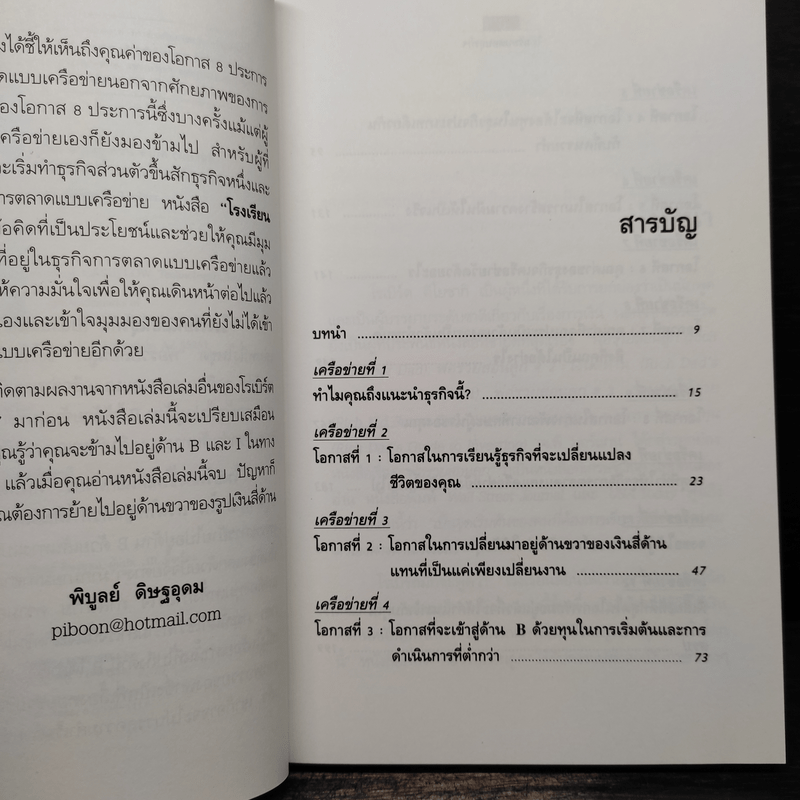 งได้ชี้ให้เห็นถึงคุณค่าของโอกาส 8 ประการ
ดแบบเครือข่ายนอกจากศักยภาพของการ
องโอกาส 8 ประการนี้ซึ่งบางครั้งแม้แต่ผู้
ครือข่ายเองก็ยังมองข้ามไป สำหรับผู้ที่
ะเริ่มทำธุรกิจส่วนตัวขึ้นสักธุรกิจหนึ่งและ
ารตลาดแบบเครือข่าย หนังสือ "โรงเรียน
้อคิดที่เป็นประโยชน์และช่วยให้คุณมีมุม
ที่อยู่ในธุรกิจการตลาดแบบเครือข่ายแล้ว
ห้ความมั่นใจเพื่อให้คุณเดินหน้าต่อไปแล้ว
เองและเข้าใจมุมมองของคนที่ยังไม่ได้เข้า
แบบเครือข่ายอีกด้วย
ติดตามผลงานจากหนังสือเล่มอื่นของโรเบิร์ต
" มาก่อน หนังสือเล่มนี้จะเปรียบเสมือน
ุณรู้ว่าคุณจะข้ามไปอยู่ด้าน B และ I ในทาง
แล้วเมื่อคุณอ่านหนังสือเล่มนี้จบ ปัญหาก็
ณต้องการย้ายไปอยู่ด้านขวาของรูปเงินสี่ด้าน
พิบูลย์ ดิษฐอุดม
piboon@hotmail.com
สารบัญ
บทนำ ........ 9
เครือข่ายที่ 1
ทำไมคุณถึงแนะนำธุรกิจนี้? ........ 15
เครือข่ายที่ 2
โอกาสที่ 1 : โอกาสในการเรียนรู้ธุรกิจที่จะเปลี่ยนแปลง
ชีวิตของคุณ ........ 23
เครือข่ายที่ 3
โอกาสที่ 2 : โอกาสในการเปลี่ยนมาอยู่ด้านขวาของเงินสี่ด้าน
แทนที่เป็นแค่เพียงเปลี่ยนงาน ........ 47
เครือข่ายที่ 4
โอกาสที่ 3 : โอกาสที่จะเข้าสู่ด้าน B ด้วยทุนในการเริ่มต้นและการ
ดำเนินการที่ต่ำกว่า ........ 73